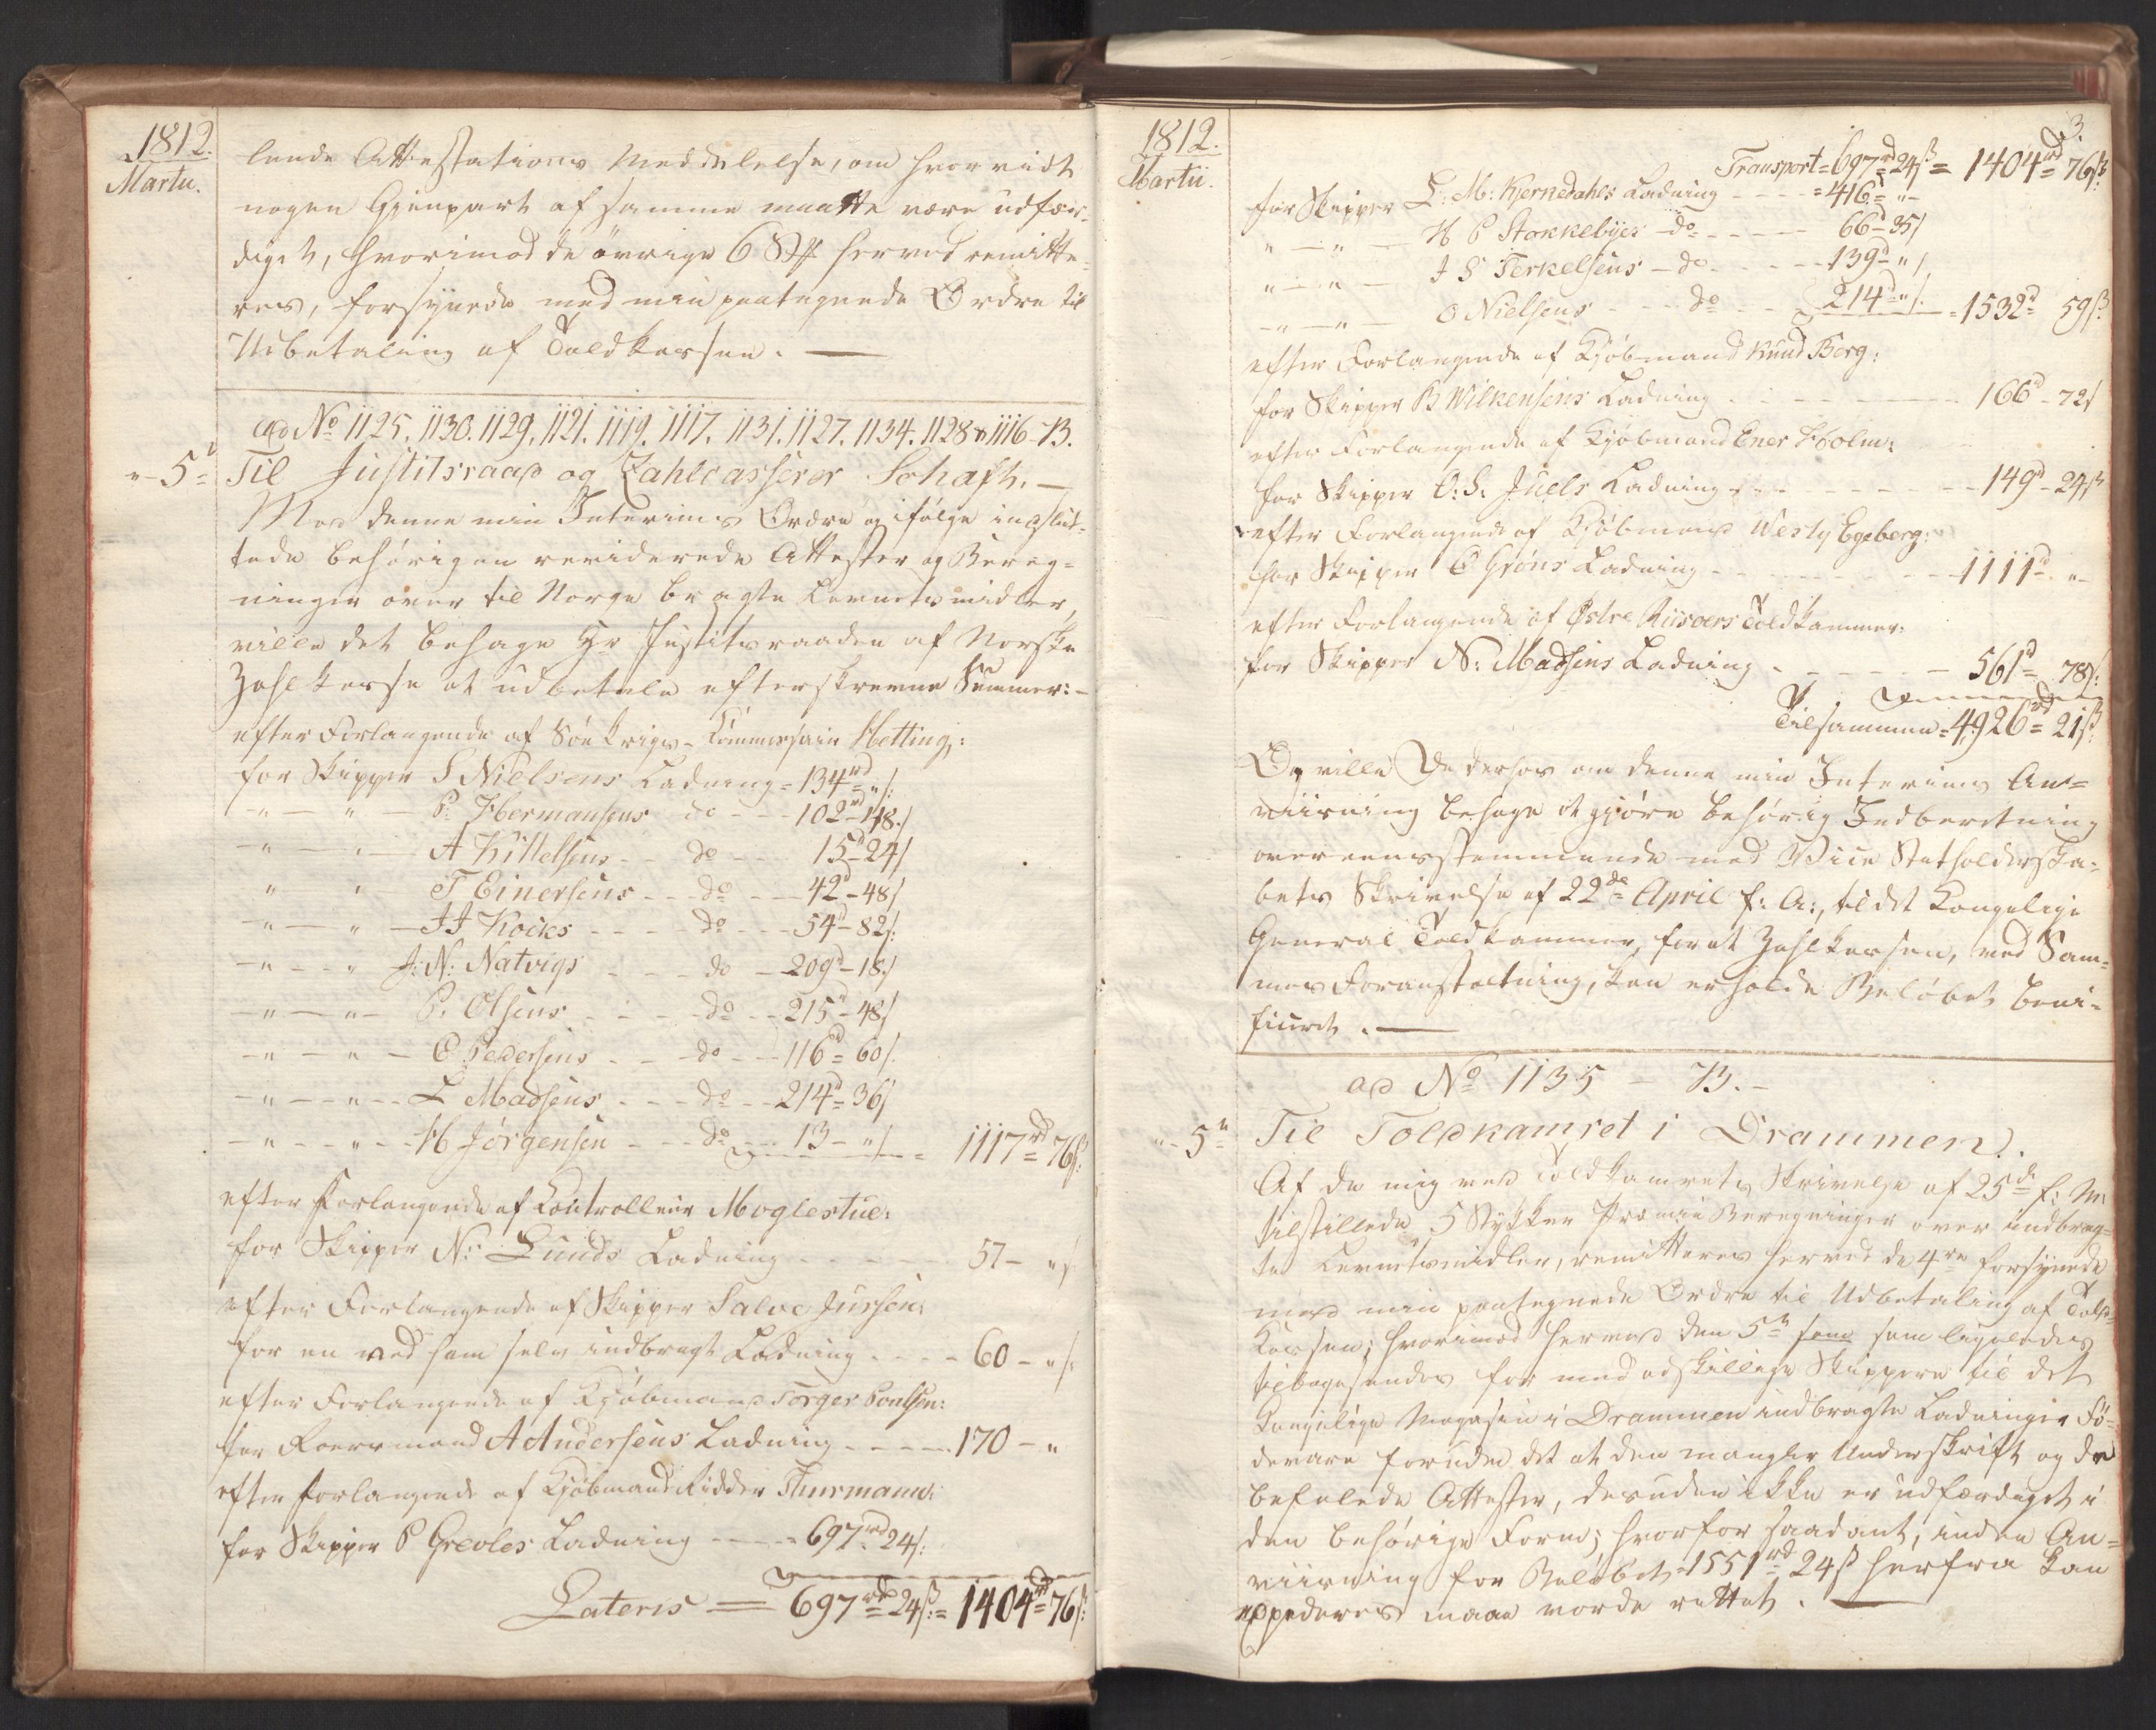 1812.
Martii.
lende Attestations Meddelelse, om hvorvidt
nogen Gjenpart af samme maatte være udfær-
diget, hvorimod de øvrige 6 St herved remitte-
res, forsynede med min paategnede Ordre til
Udbetaling af Toldkassen. —
ad No 1125. 1130. 1129. 1121. 1119. 1117. 1131. 1127. 1134. 1128 & 1116 - B.
" - 5te Til Justitsraad og Zahlcasserer Schaft. —
Mod denne min Interims Ordre og ifølge indslut-
tede behørigen reviderede Attester og Bereg-
ninger over til Norge bragte Levnetsmidler,
ville det behage Hr Justitsraaden af Norske
Zahlkasse at udbetale efterskrevne Summer: -
efter Forlangende af Søekrigs-Commissair Hetting:
for Skipper S Nielsens Ladning = 134rd = " s:
- " — " — P. Hermansens do - - 102rd - 48 s
- " — " — A Kittelsens - - do - - 15d - 24 s
" " — T Einersens - - do - - 42d - 48 s
- " — " — J J Kocks - - - do - - 54d - 82 s:
- " - - " J: N: Natvigs - - - do - 209d - 18 s
- " — " - P. Olsens - - - do - - 215d - 48 s
- " — " — E Pedersens - - do - - 116d = 60 s.
- " — " - - L Madsens - - - do - - 214d = 36 s
- " - - " - - H Jørgensen - - do - - 13 - " s = 1117rd = 76 s:
efter Forlangende af Controlleur Moglestue:
for Skipper N: Lunds Ladning - - - - - 57 - " s
efter Forlangende af Skipper Salve Jussen:
for en ved ham selv indbragt Ladning - - - - 60 - " s:
efter Forlangende af Kjøbmand Torger Poulsen:
for Roersmand A Andersens Ladning - - - - 170 - "
efter Forlangende af Kjøbmand Ridder Thurmann:
for Skipper P Grevles Ladning - - - = 697rd 24 s:
Lateris = 697rd = 24 s: = 1404rd = 76 s:
1812.
Martii.
3.
Transport = 697rd = 24 s = 1404rd = 76 s:
for Skipper L: M: Kjernedahls Ladning - - - = 416d = " -
" — " — H P Stokkebyes - do - - - - 66d - 35 s
" — " — J S Terkelsens - do - - - - 139d - " s
- " — " — O Nielsens - - - do - - 214d = " s. = 1532d 59 s:
efter Forlangende af Kjøbmand Knud Borg:
for Skipper B Wilkensens Ladning - - - - - 166d - 72 s
efter Forlangende af Kjøbmand Ener Holm:
for Skipper O: S: Juels Ladning - - - - - - 149d - 24 s
efter Forlangende af Kjøbmand Westy Egeberg:
for Skipper C Grøns Ladning - - - - - - 1111d. " -
efter Forlangende af Østre Riisoers Toldkammer:
for Skipper N: Madsens Ladning - - - - - 561d = 78 s:
Tilsammen = 4926rd = 21 s:
Og ville De derhos om denne min Interims An-
viisning behage at gjøre behørig Indberetning
overeensstemmende med Vice Statholderska-
bets Skrivelse af 22de April f: A:, til det Kongelige
General Toldkammer, for at Zahlkassen, ved Sam-
mes Foranstaltning, kan erholde Beløbet beni-
ficeret. —
ad No 1135 - B. -
" - 5te Til Toldkamret i Drammen.
Af de mig med Toldkamrets Skrivelse af 25de f: M:
tilstillede 5 Stykker Præmie Beregninger over indbrag-
te Levnetsmidler, remitteres herved de 4re forsynede
med min paategnede Ordre til Udbetaling af Told-
Kassen; hvorimod herved den 5te som ligeledes
tilbagesendes for med adskillige Skippere til det
Kongelige Magasin i Drammen indbragte Ladninger Fø-
devare foruden det at den mangler Underskrift og de
befalede Attester, desuden ikke er udfærdiget i
den behørige Form; hvorfor saadant, inden An-
viisning for Beløbet 1551rd 24 s herfra kan
expederes maae vorde rettet. —